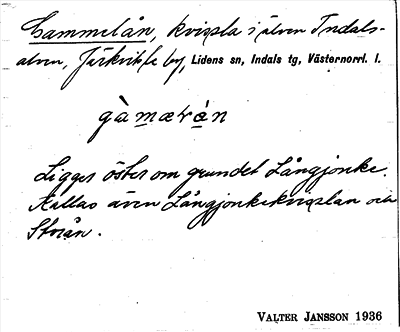 Gammelån, kvissla i älven Indals-
älven, Järkvitsle by, Lidens sn, Indals tg, Västernorrl. l.
gàmærán
Ligger öster om grundet Långjonke.
Kallas även Långjonkekvisslan och
Storån.
VALTER JANSSON 1936